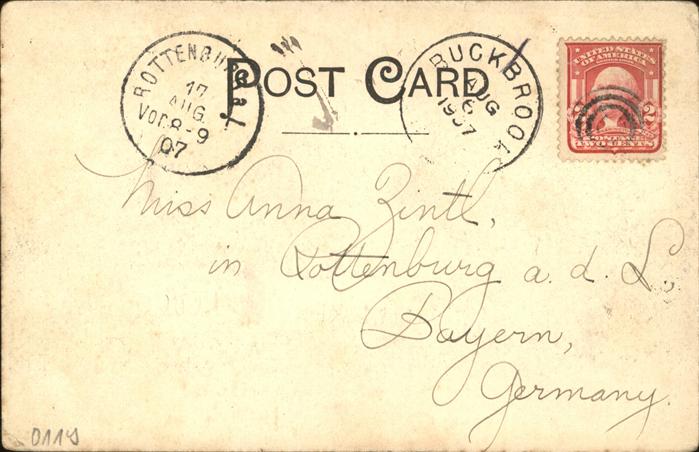 ROTTENBURG a/L
17
AUG.
Vor 8-9
07
POST CARD
BUCKBROOK
AUG
6
1907
UNITED STATES
OF AMERICA
2 2
POSTAGE
TWO CENTS
Miss Anna Zintl,
in Rottenburg a. d. L.,
Bayern,
Germany.